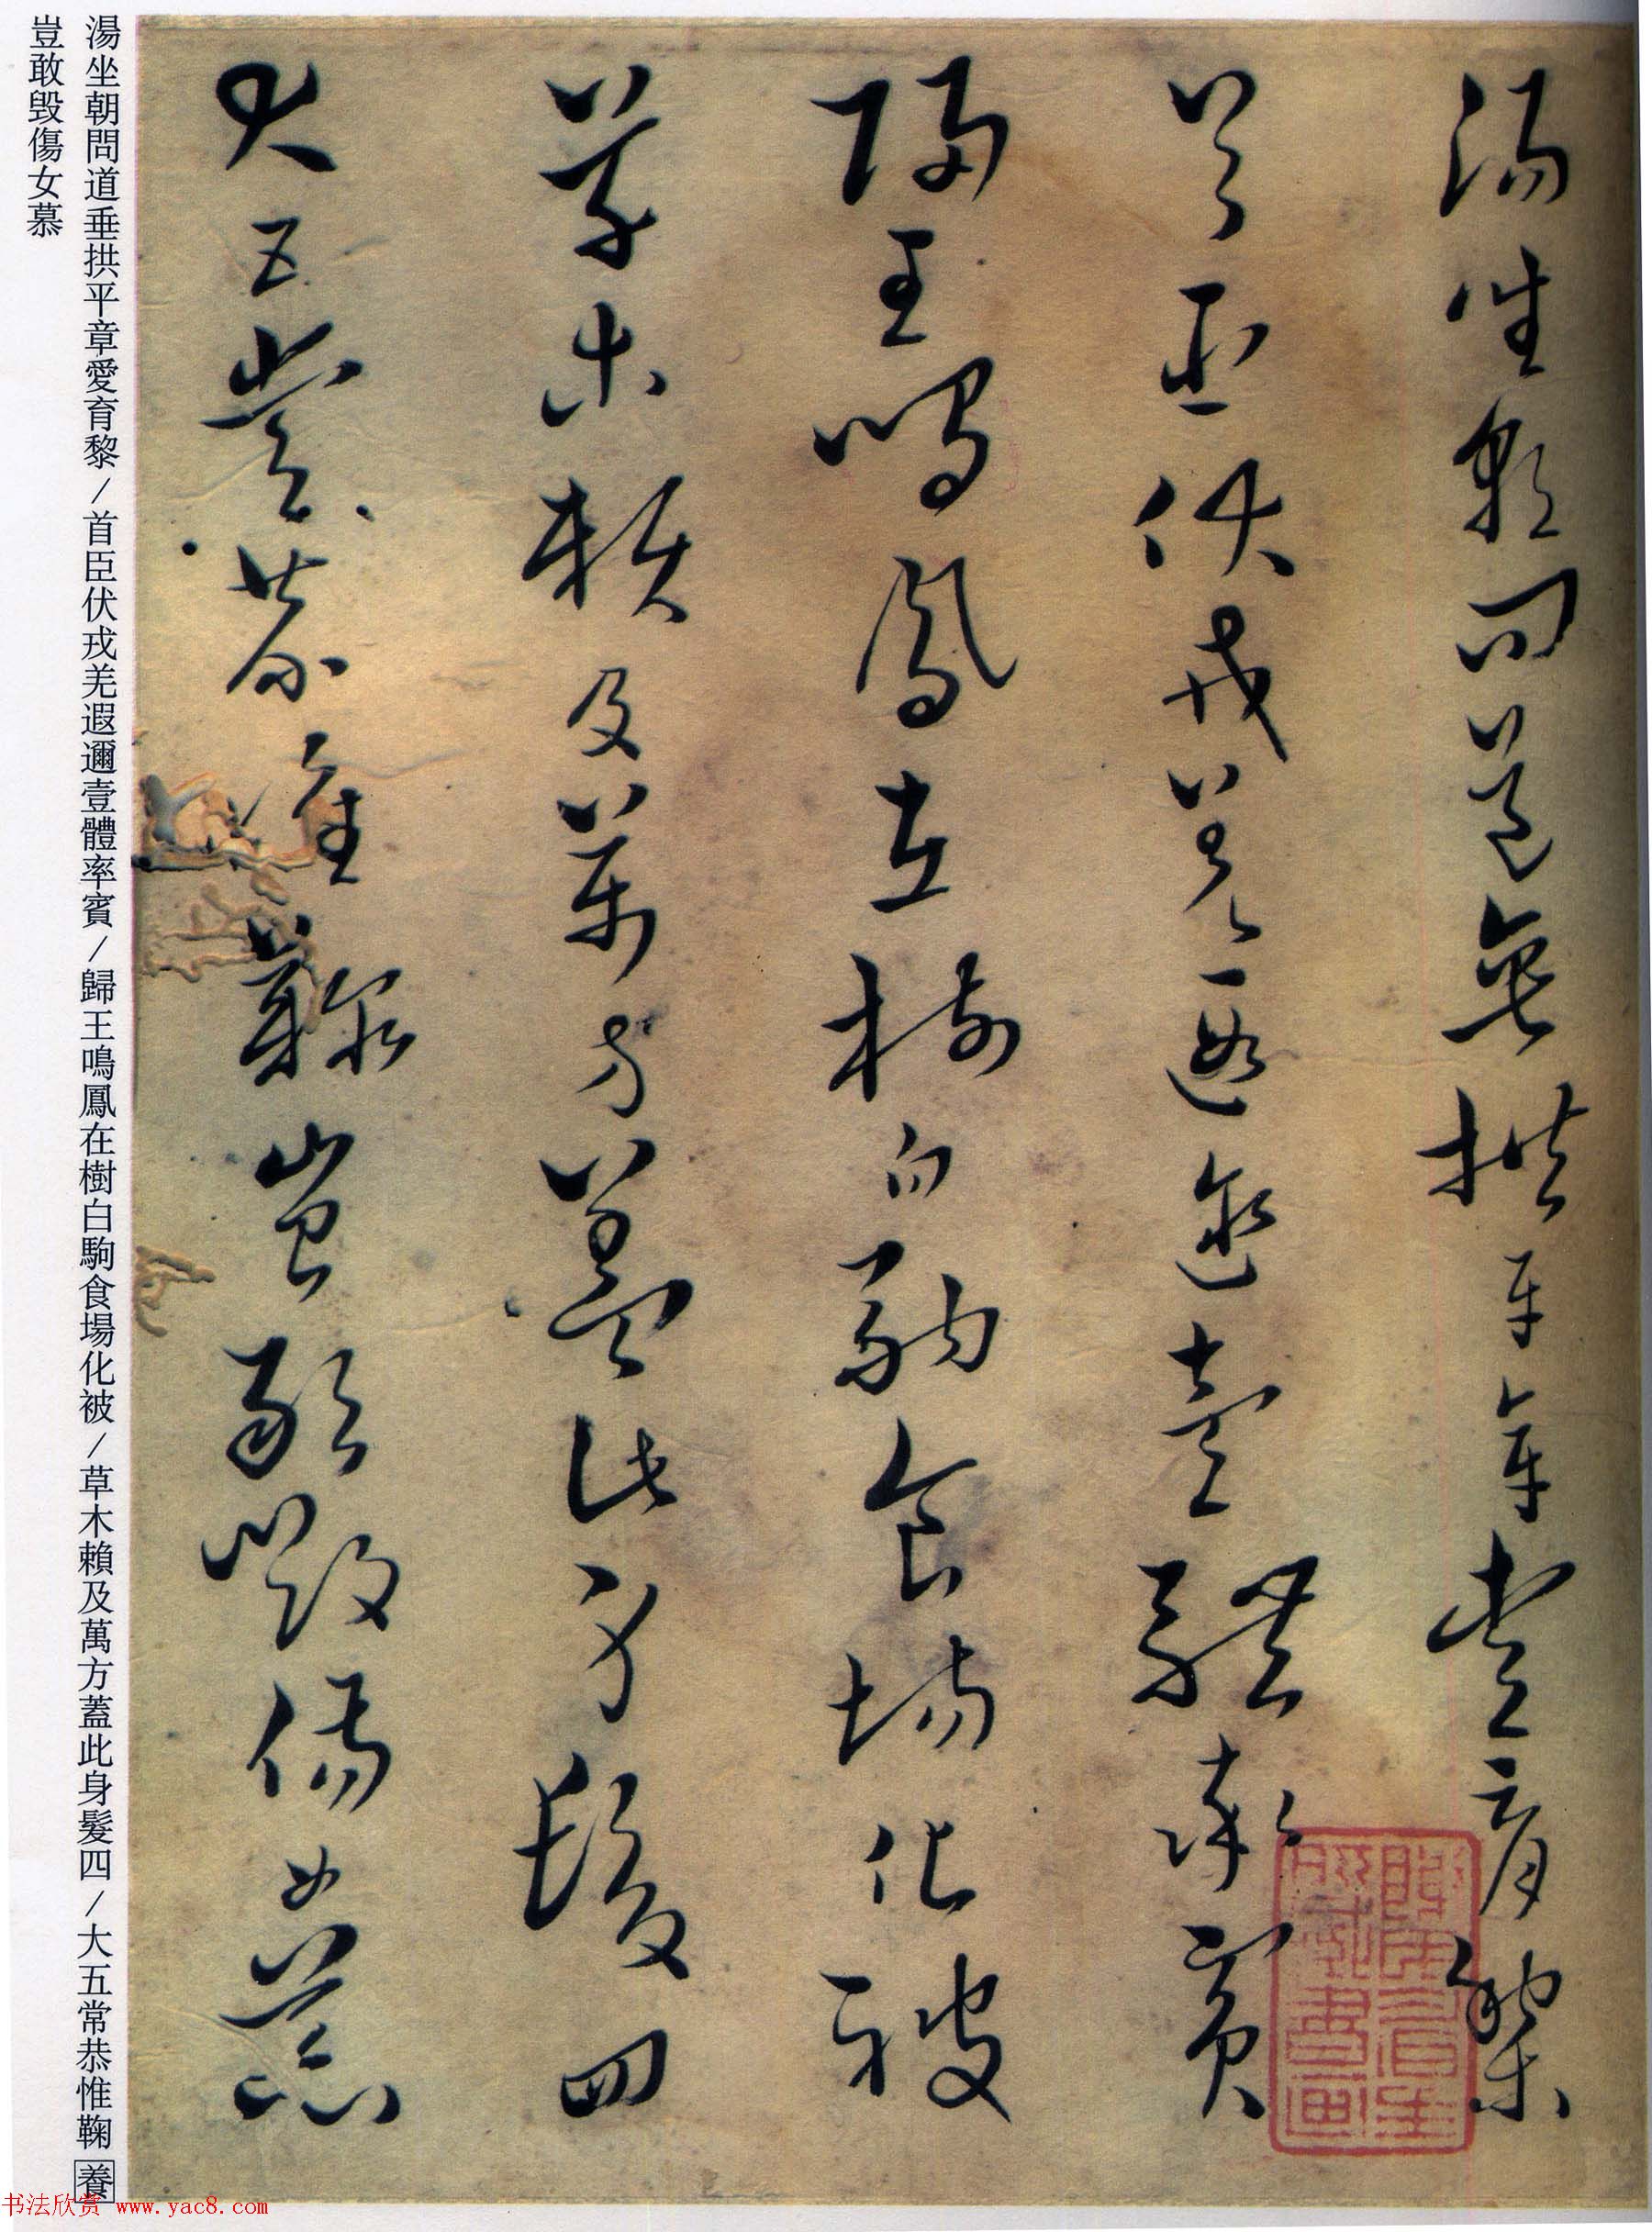 湯坐朝問道垂拱平章愛育黎
首臣伏戎羌遐邇壹體率賓
歸王鳴鳳在樹白駒食場化被
草木賴及萬方蓋此身髮四
大五常恭惟鞠豈敢毀傷女慕
湯坐朝問道垂拱平章愛育黎/首臣伏戎羌遐邇壹體率賓/歸王鳴鳳在樹白駒食場化被/草木賴及萬方蓋此身髮四/大五常恭惟鞠養
豈敢毀傷女慕
书法欣赏 www.yac8.com